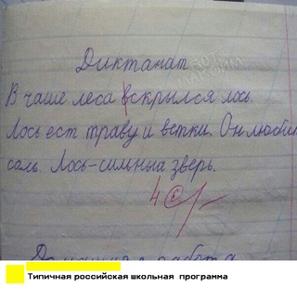 Диктанат
В чаше леса вскрылся лось.
Лось ест траву и ветки. Он любит
соль. Лось-сильныа зверь.
4
Домашняя работа
Типичная российская школьная программа